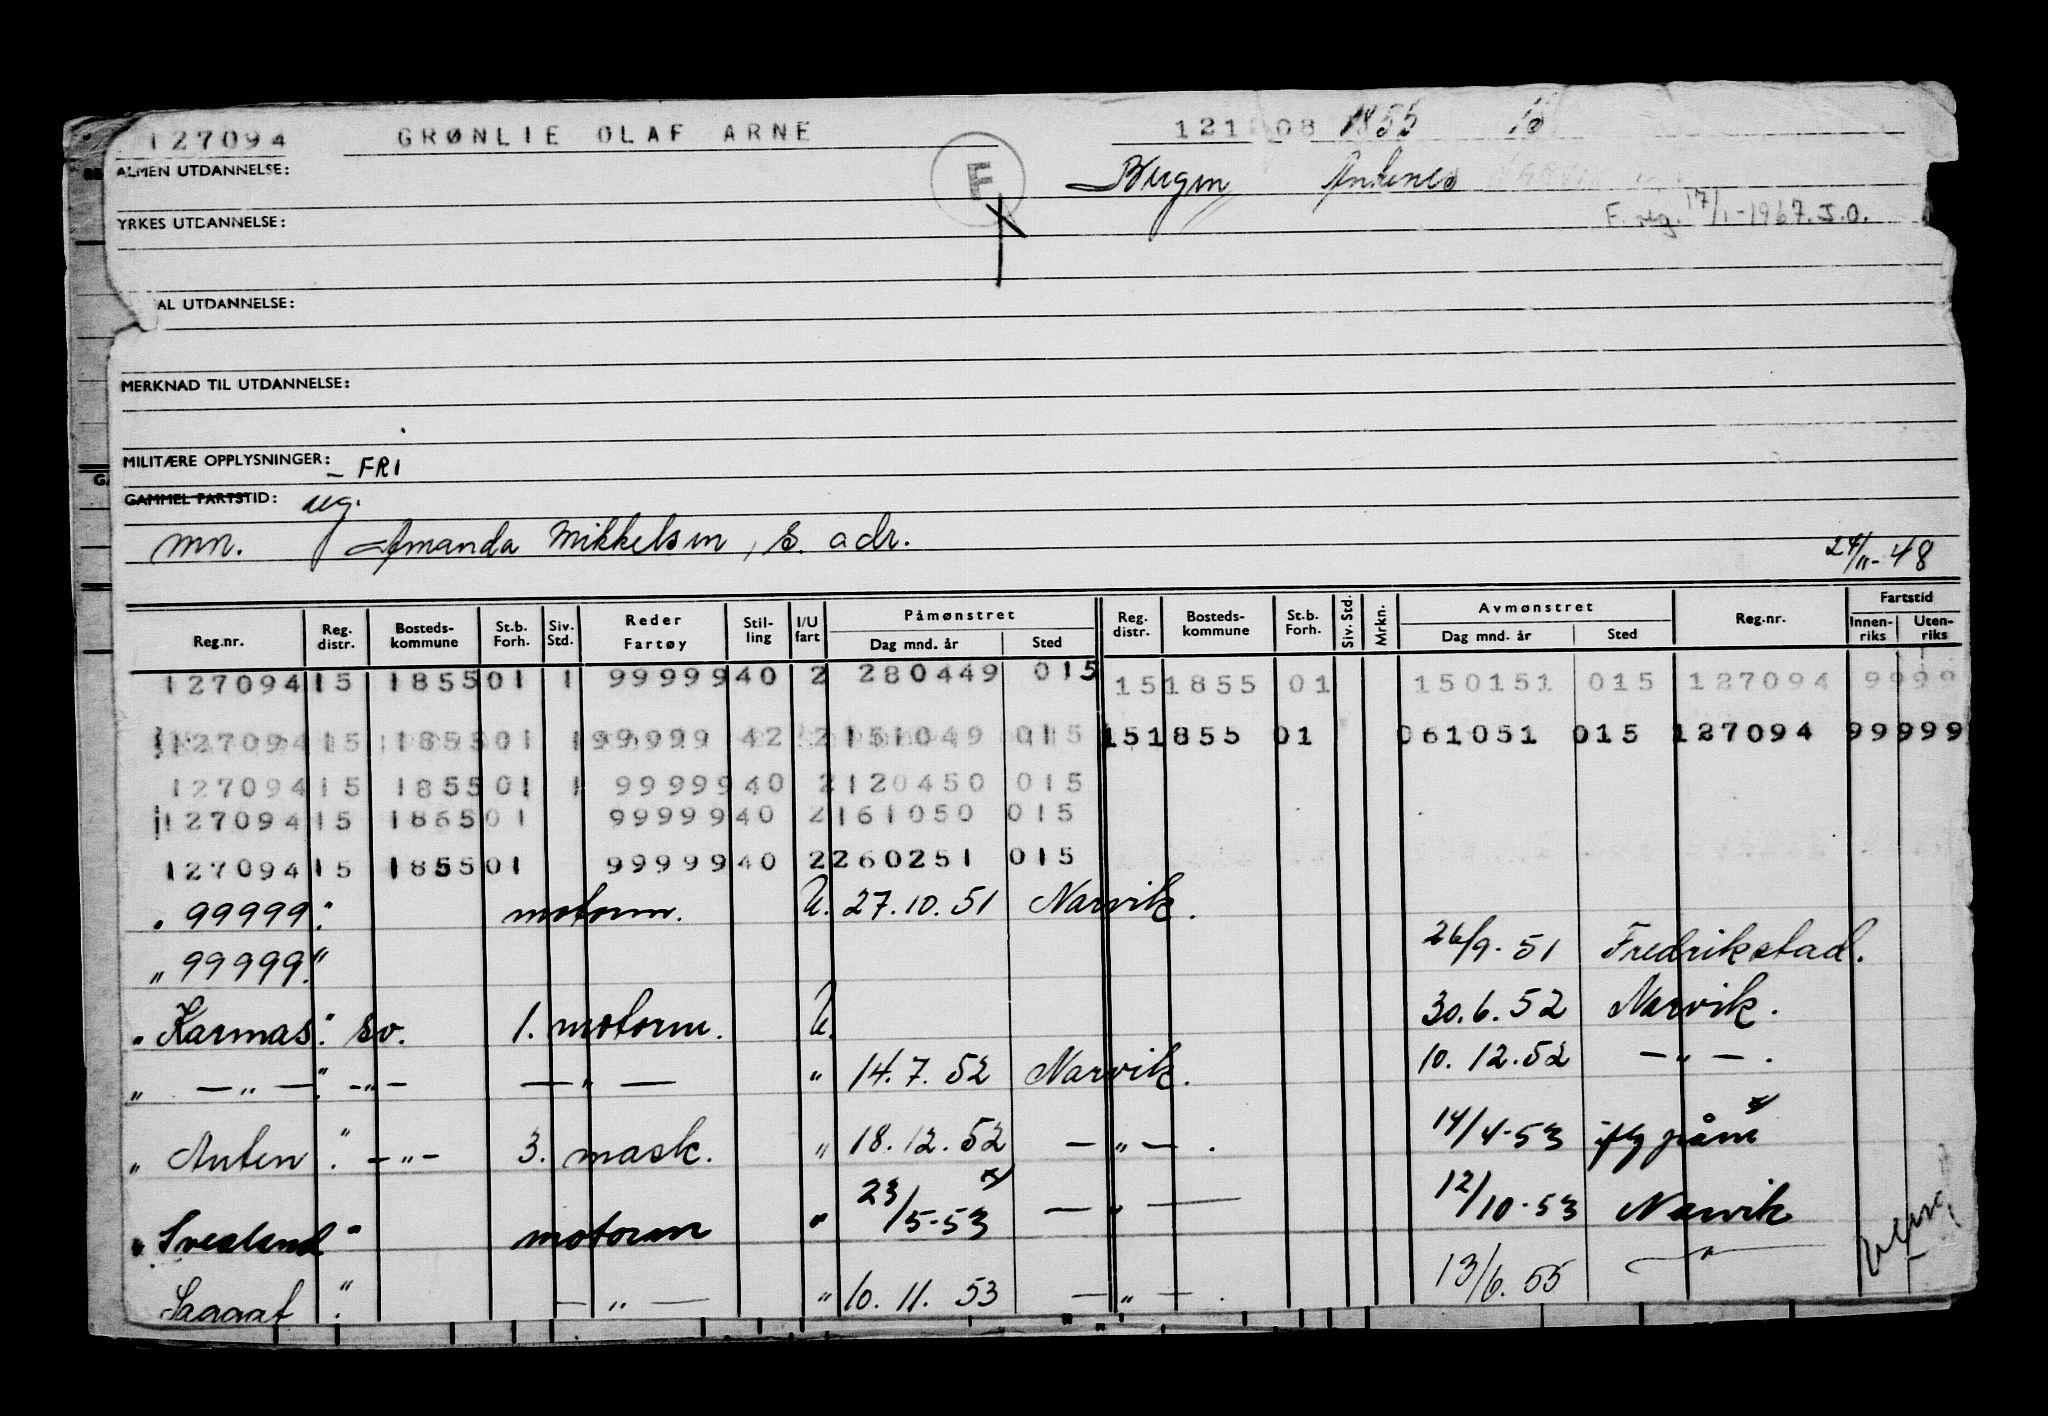 127094 GRØNLIE OLAF ARNE 121208 1855
ALMEN UTDANNELSE: E Ankenes
YRKES UTDANNELSE: F. reg. 17/1-1967. J.O.
AL UTDANNELSE:
MERKNAD TIL UTDANNELSE:
MILITÆRE OPPLYSNINGER: – FRI
GAMMEL FARTSTID: reg.
mn. Amanda Mikkelsen, s. adr. 24/11-48
Reg.nr. Reg. distr. Bosteds-kommune St.b. Forh. Siv. Std. Reder Fartøy Stil-ling I/U fart Påmønstret Dag mnd. år Sted Reg. distr. Bosteds-kommune St.b. Forh. Siv. Std. Mrkn. Avmønstret Dag mnd. år Sted Reg.nr. Fartstid Innen-riks Uten-riks
127094 15 1855 01 1 99999 40 2 280449 015 15 1855 01 150151 015 127094 9999
127094 15 1855 01 1 99999 42 2 151049 015 15 1855 01 061051 015 127094 99999
127094 15 1855 01 1 99999 40 2 120450 015
127094 15 1865 01 99999 40 2 161050 015
127094 15 1855 01 99999 40 2 260251 015
" 99999." motorm. U. 27.10.51 Narvik.
" 99999." 26/9-51 Fredrikstad.
" Karmas." sv. 1. motorm. U. 30.6.52 Narvik.
" — " — " — " — — " — " 14.7.52 Narvik. 10.12.52 — " — .
" Anten ". — " — 3. mask. " 18.12.52 — " — . 14/4-53 påm x/
" Svealand " motorm " 23/5-53 x/ — " — 12/10-53 Narvik
Saggat ". — " — " 10.11.53 — " — . 13/6.55 — " —